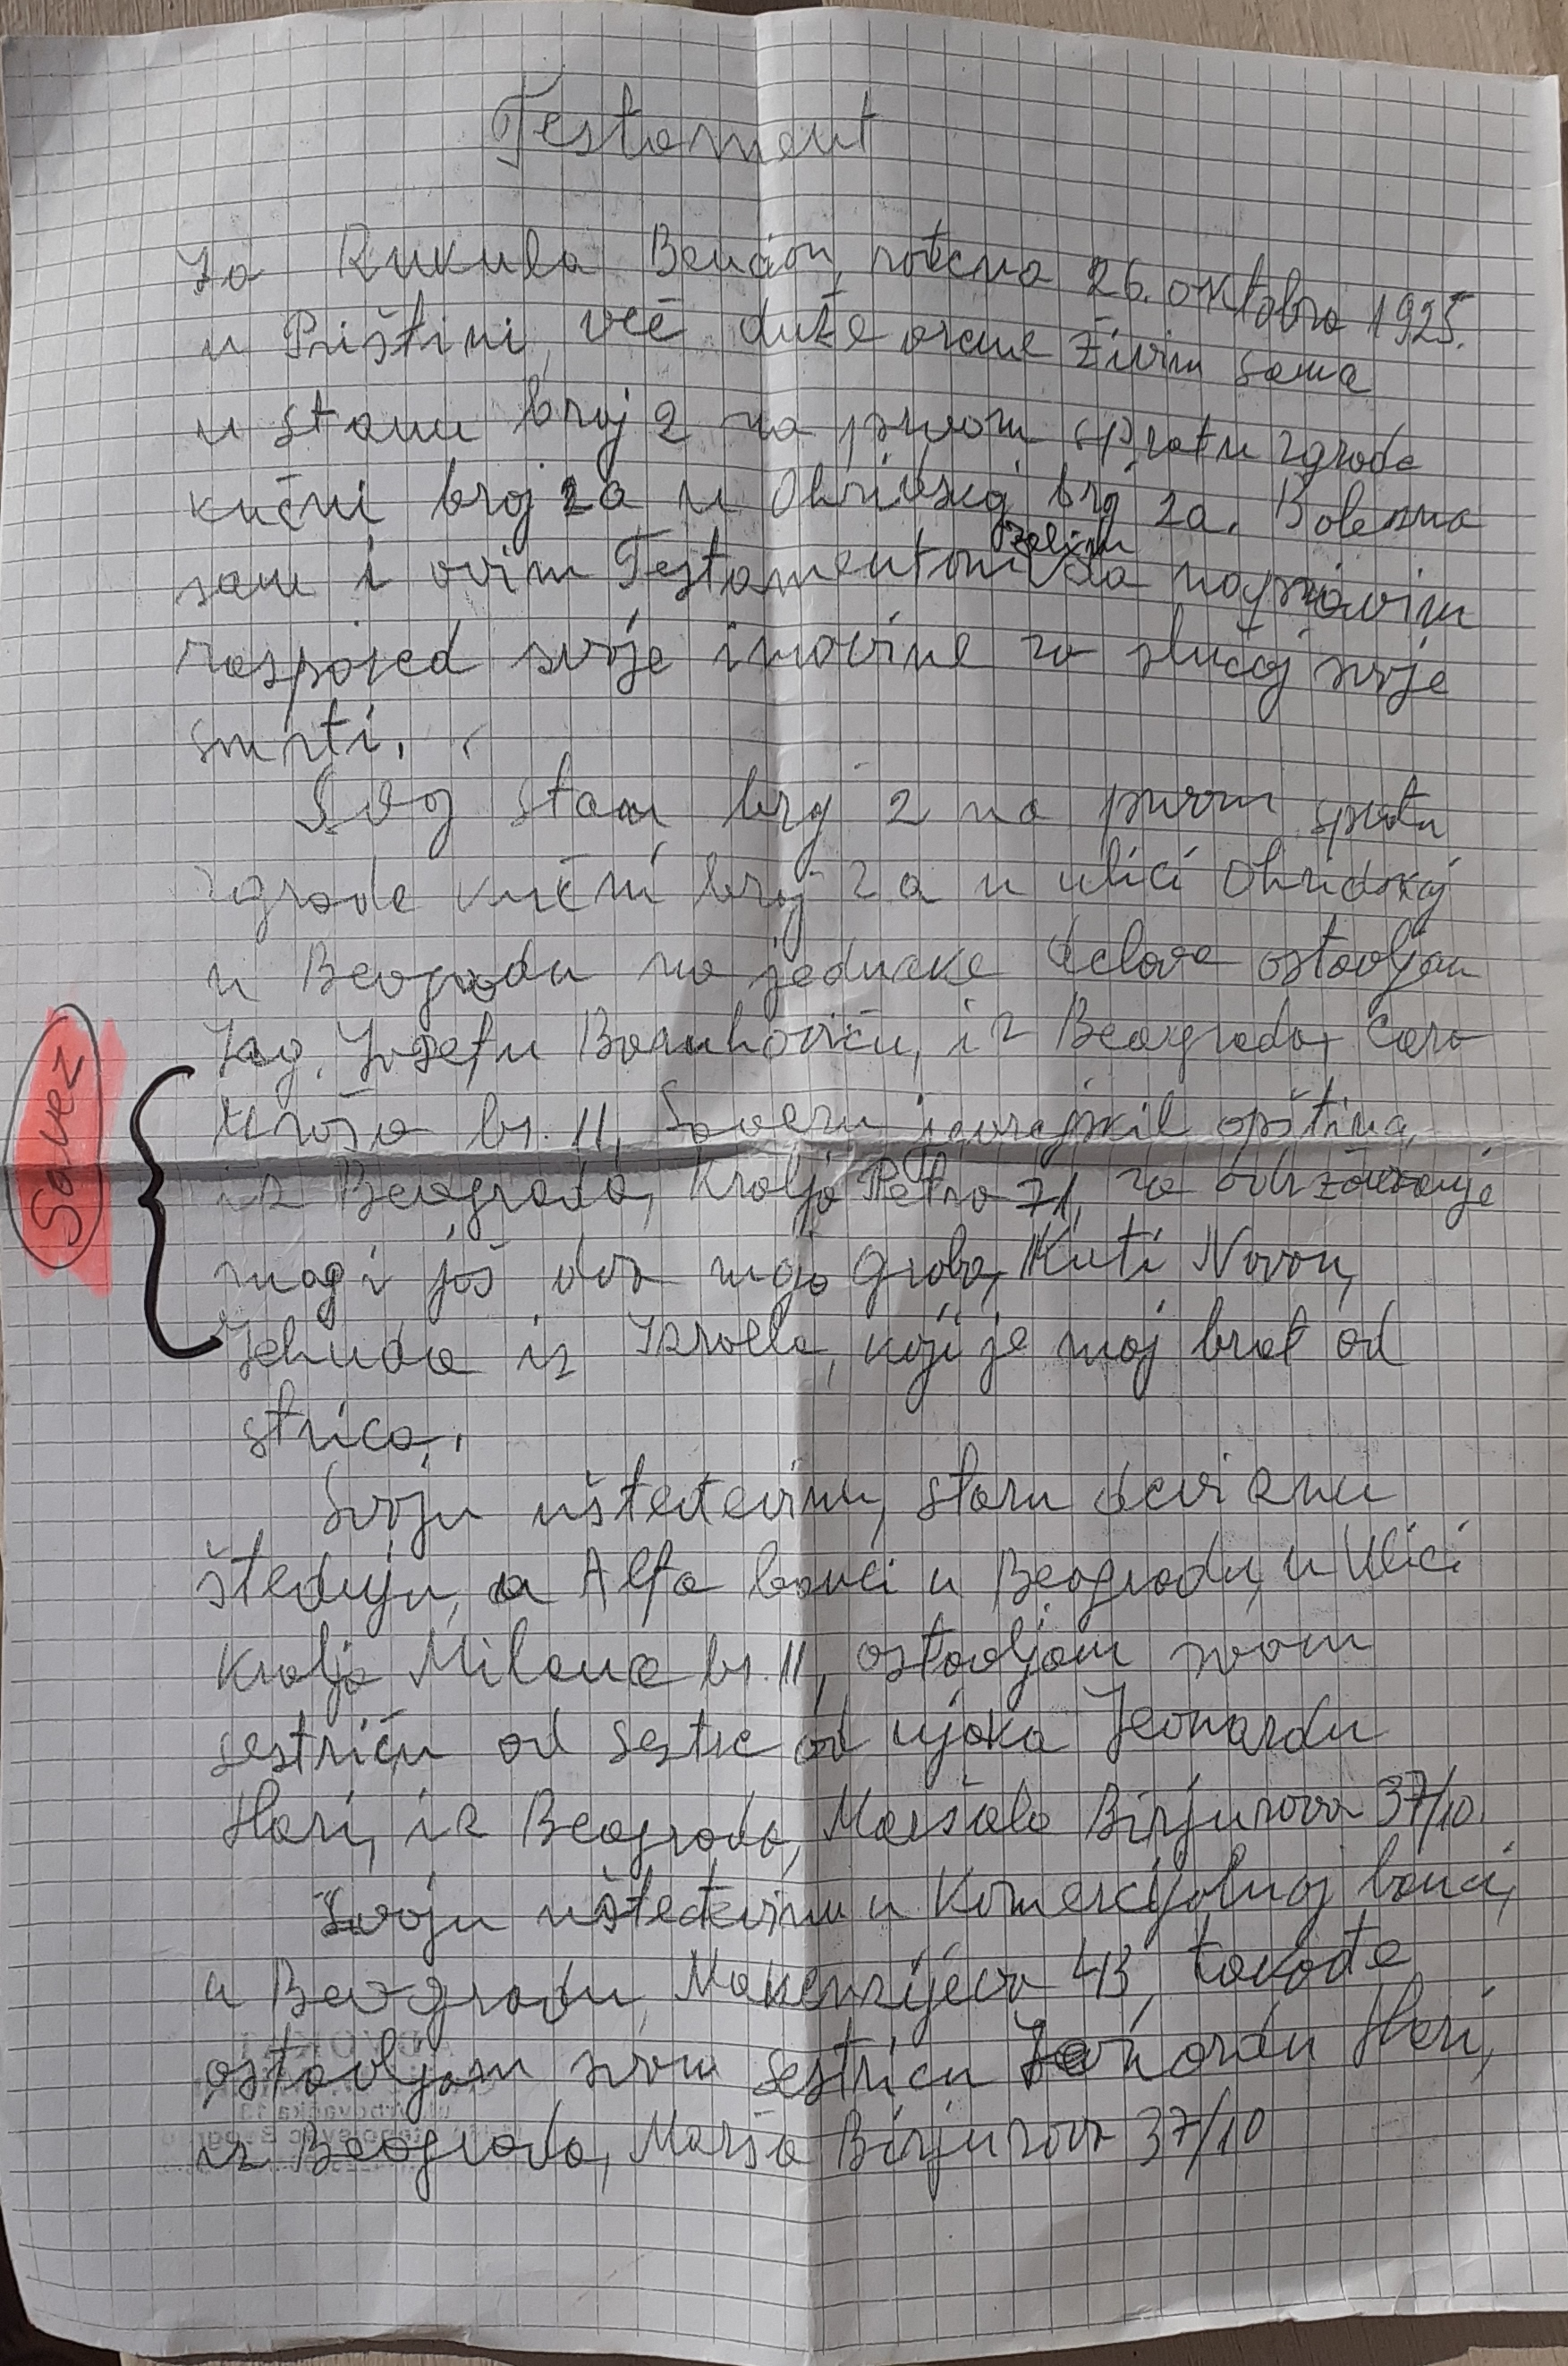 Testament
Ja Rukula Bencion, rođena 26. oktobra 1925.
u Prištini, već duže vreme živim sama
u stanu broj 2 na prvom spratu zgrade
kućni broj 2a u Ohridskoj broj 2a. Bolesna
želim
sam i ovim Testamentom da napravim
raspored svoje imovine za slučaj svoje
smrti.
Svoj stan broj 2 na prvom spratu
zgrade kućni broj 2a u ulici Ohridskoj
u Beogradu na jednake delove ostavljam
Jozefu Baruhoviću, iz Beograda, Cara
Uroša br. 11, Savezu jevrejskih opština,
iz Beograda, Kralja Petra 71, za održavanje
mog i još dva moja groba, Kuti Navon,
Jehuda iz Izraela, koji je moj brat od
strica.
Svoju ušteđevinu, staru deviznu
štednju, u Alfa banci u Beogradu, u Ulici
Kralja Milana br. 11, ostavljam svom
sestriću od sestre od ujaka Leonardu
Hari, iz Beograda, Maršala Birjuzova 37/10.
Svoju ušteđevinu u Komercijalnoj banci,
u Beogradu, Makenzijeva 43, takođe
ostavljam svom sestriću Leonardu Hari,
iz Beograda, Marša Birjuzova 37/10
Savez